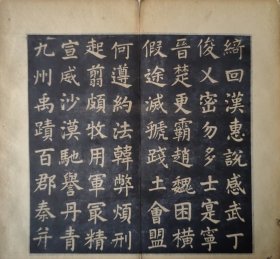 綺回漢惠說感武丁
俊乂密勿多士寔寧
晉楚更霸趙魏困橫
假途滅虢踐土會盟
何遵約法韓弊煩刑
起翦頗牧用軍最精
宣威沙漠馳譽丹青
九州禹蹟百郡秦并